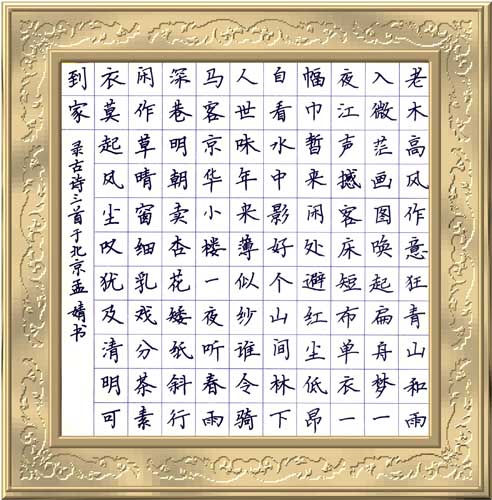 老木高风作意狂青山和雨
入微茫画图唤起扁舟梦一
夜江声撼客床短布单衣一
幅巾暂来闲处避红尘低昂
自看水中影好个山间林下
人世味年来薄似纱谁令骑
马客京华小楼一夜听春雨
深巷明朝卖杏花矮纸斜行
闲作草晴窗细乳戏分茶素
衣莫起风尘叹犹及清明可
到家
录古诗三首于北京孟婧书